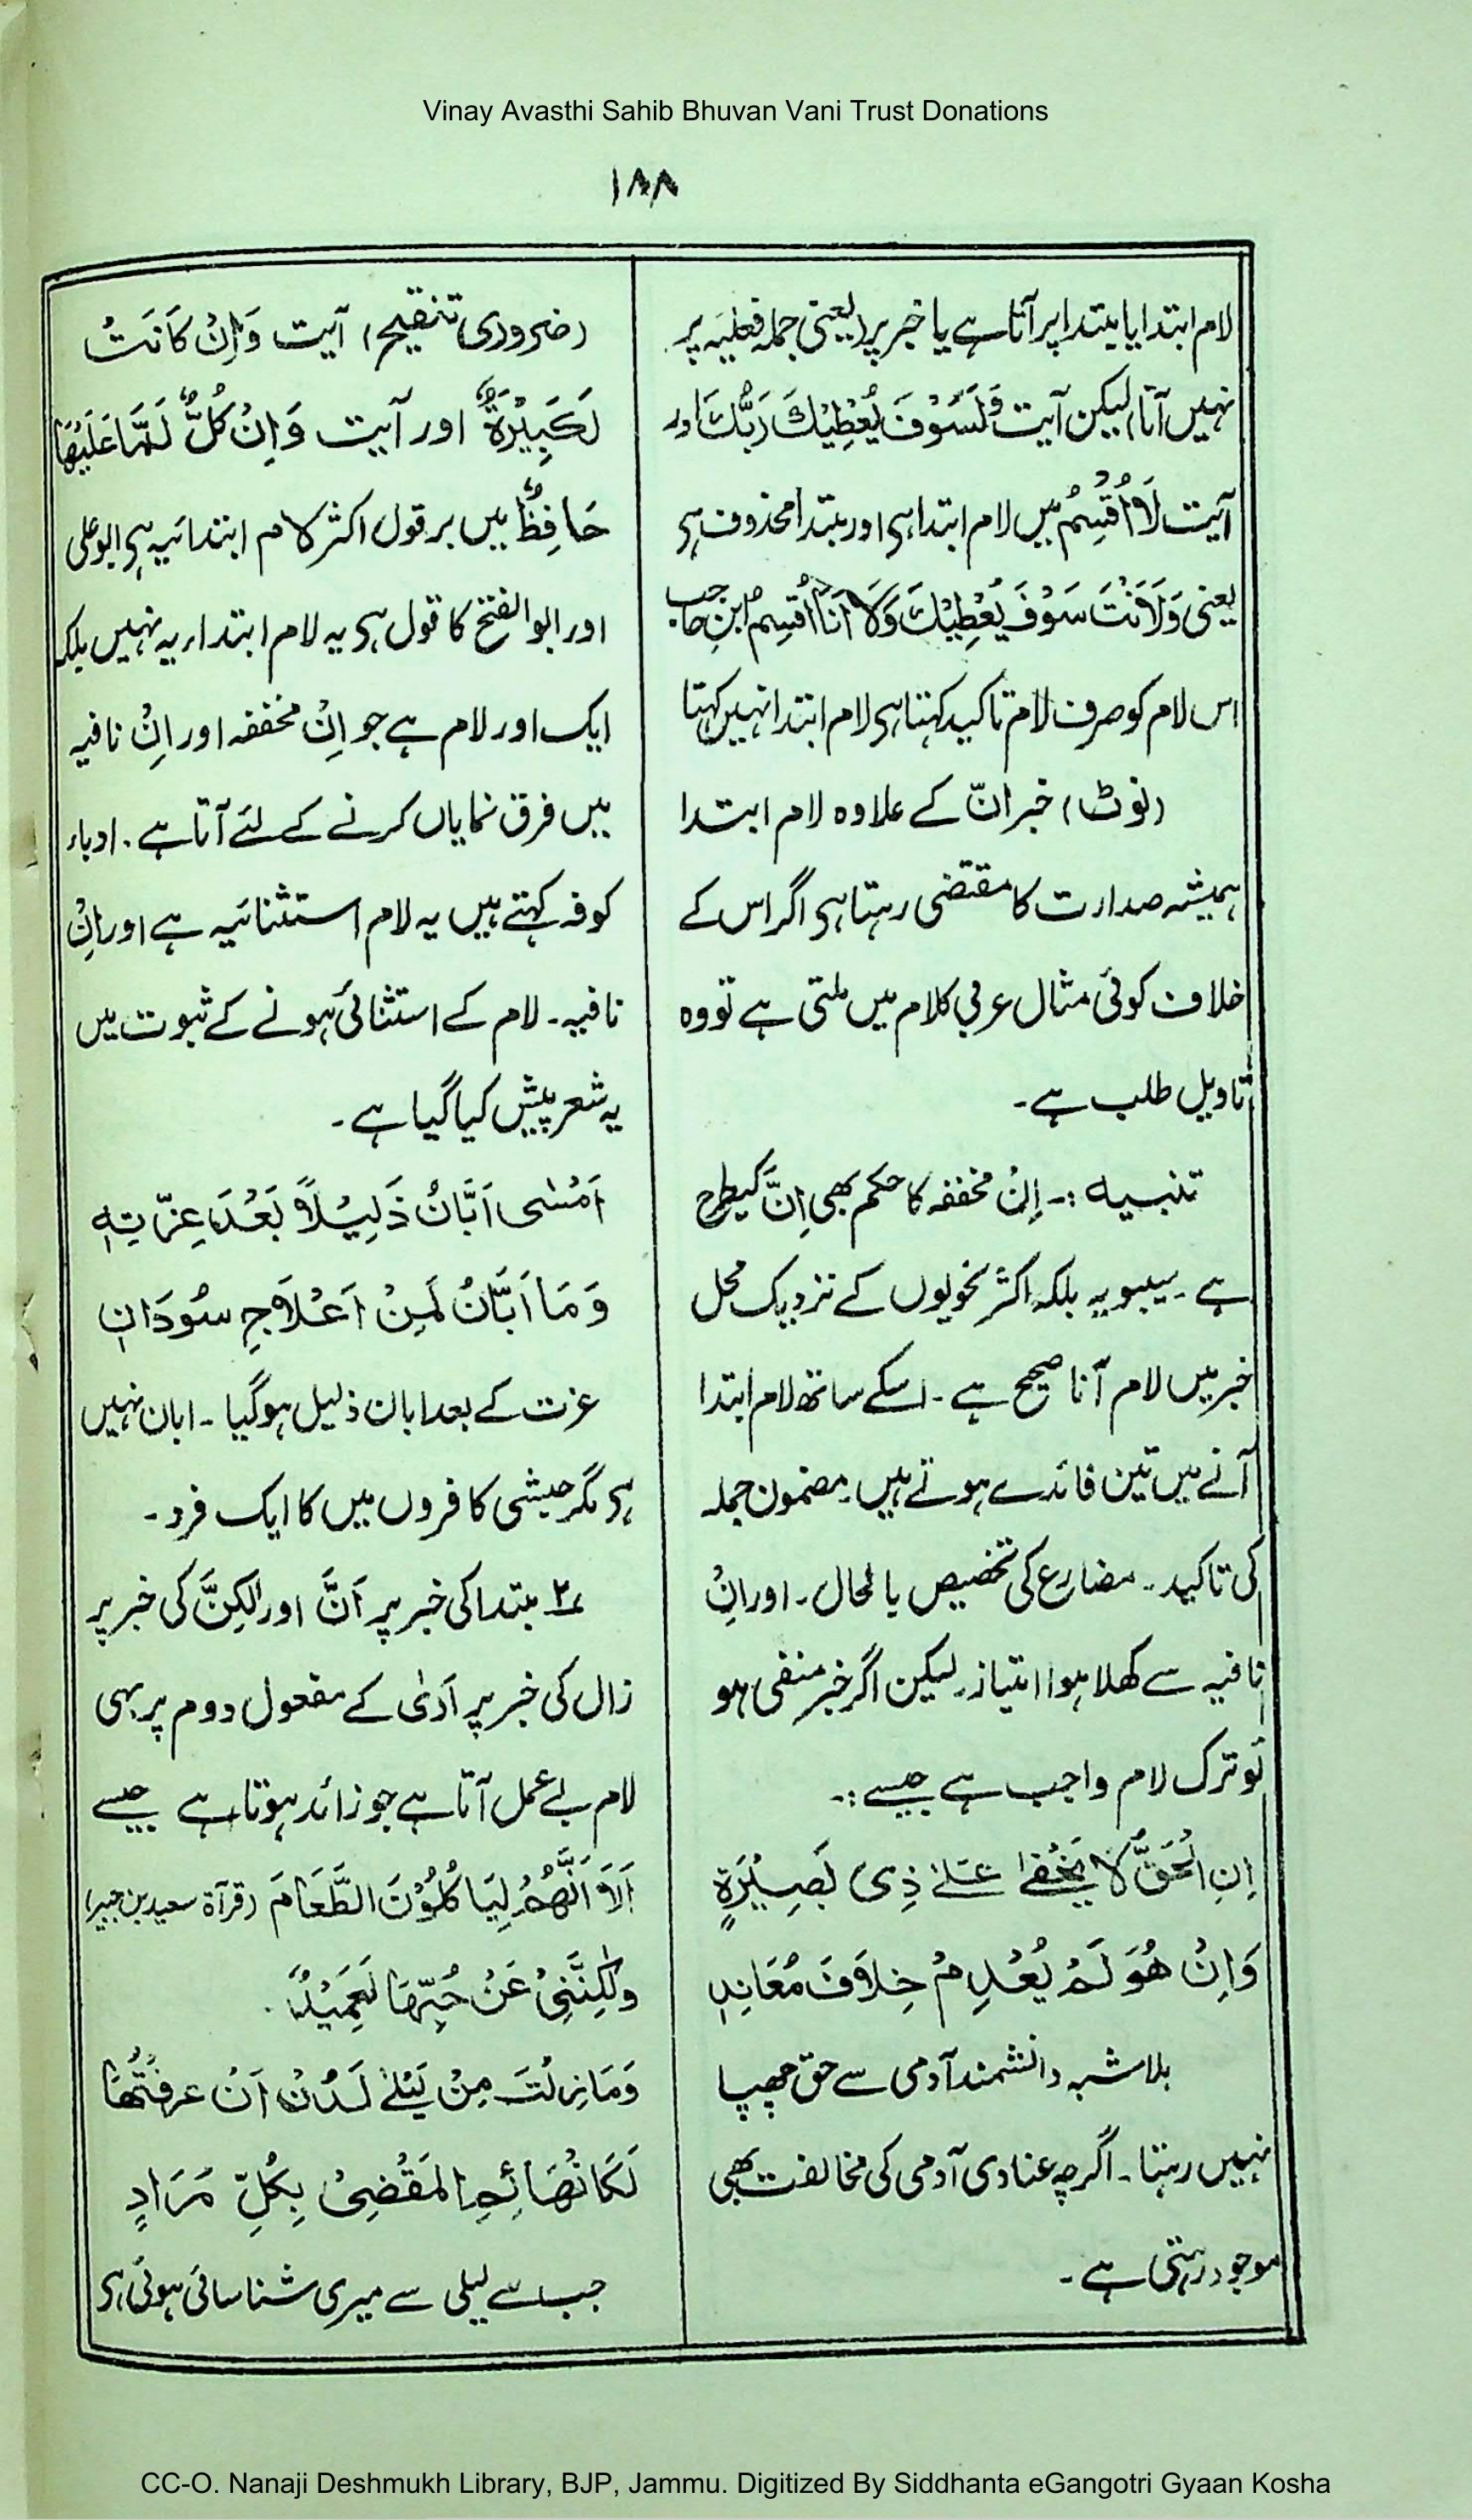 Vinay Avasthi Sahib Bhuvan Vani Trust Donations
۱۸۸
لام ابتدا یا مبتدا پر آتا ہے یا خبر پر (یعنی جملہ فعلیہ پر
نہیں آتا) لیکن آیت وَلَسَوْفَ یُعْطِیْكَ رَبُّكَ اور
آیت لَاُقْسِمُ میں لام ابتدا ہی اور مبتدا محذوف ہی
یعنی وَلَاَنْتَ سَوْفَ یُعْطِیْكَ وَلَاَنَا اُقْسِمُ ابن حاجب
اس لام کو صرف لام تاکید کہتا ہی لام ابتدا نہیں کہتا
(نوٹ) خبر انّ کے علاوہ لام ابتدا
ہمیشہ صدارت کا مقتضی رہتا ہی اگر اس کے
خلاف کوئی مثال عربی کلام میں ملتی ہے تو وہ
تاویل طلب ہے۔
تنبیہ :۔ اِنْ مخففہ کا حکم بھی اِنَّ کیطرح
ہے۔ سیبویہ بلکہ اکثر نحویوں کے نزدیک محل
خبر میں لام آنا صحیح ہے۔ اسکے ساتھ لام ابتدا
آنے میں تین فائدے ہوتے ہیں۔ مضمون جملہ
کی تاکید۔ مضارع کی تخصیص بالحال۔ اور اِنْ
نافیہ سے کھلا ہوا امتیاز۔ لیکن اگر خبر منفی ہو
تو ترک لام واجب ہے جیسے :۔
اِنِ الْحَقُّ لَا یَخْفٰی عَلٰے ذِی بَصِیْرَةٍ
وَاِنْ هُوَ لَمْ یُعْدَمْ خِلَافَ مُعَانِدٖ
بلاشبہ دانشمند آدمی سے حق چھپا
نہیں رہتا۔ اگرچہ عنادی آدمی کی مخالفت بھی
موجود رہتی ہے۔
(ضروری تنقیح) آیت وَاِنْ کَانَتْ
لَکَبِیْرَةٌ اور آیت وَاِنْ کُلٌّ لَمَّا عَلَیْهَا
حَافِظٌ میں برقول اکثر لام ابتدائیہ ہی ابوعلی
اور ابو الفتح کا قول ہی یہ لام ابتدائیہ نہیں بلکہ
ایک اور لام ہے جو اِنْ مخففہ اور اِنْ نافیہ
میں فرق نمایاں کرنے کے لئے آتا ہے۔ ادباء
کوفہ کہتے ہیں یہ لام استثنائیہ ہے اور اِنْ
نافیہ۔ لام کے استثنائی ہونے کے ثبوت میں
یہ شعر پیش کیا گیا ہے۔
اَمْسٰی اَبَّانُ ذَلِیْلاً بَعْدَ عِزَّتِهٖ
وَمَا اَبَّانُ لَمِنْ اَعْلَاجِ سُوْدَانِ
عزت کے بعد ابان ذلیل ہوگیا۔ ابان نہیں
ہی مگر حبشی کافروں میں کا ایک فرد۔
۲؎ مبتدا کی خبر پر اَنَّ اور لٰکِنَّ کی خبر پر
زال کی خبر پر اَرٰی کے مفعول دوم پر بھی
لام بے عمل آتا ہے جو زائد ہوتا ہے جیسے
اَلَا اَنَّهُمْ لَیَاکُلُوْنَ الطَّعَامَ (قرآۃ سعید بن جبیر)
ولٰکِنَّنِیْ عَنْ حُبِّهَا لَعَمِیْدُ۔
وَمَا زِلْتَ مِنْ لَیْلٰے لَدُنْ اَنْ عَرفْتُهَا
لَکَالْهَائِمِ الْمَقْضِیْ بِکُلِّ مَرَادٍ
جب سے لیلی سے میری شناسائی ہوئی ہی
CC-O. Nanaji Deshmukh Library, BJP, Jammu. Digitized By Siddhanta eGangotri Gyaan Kosha